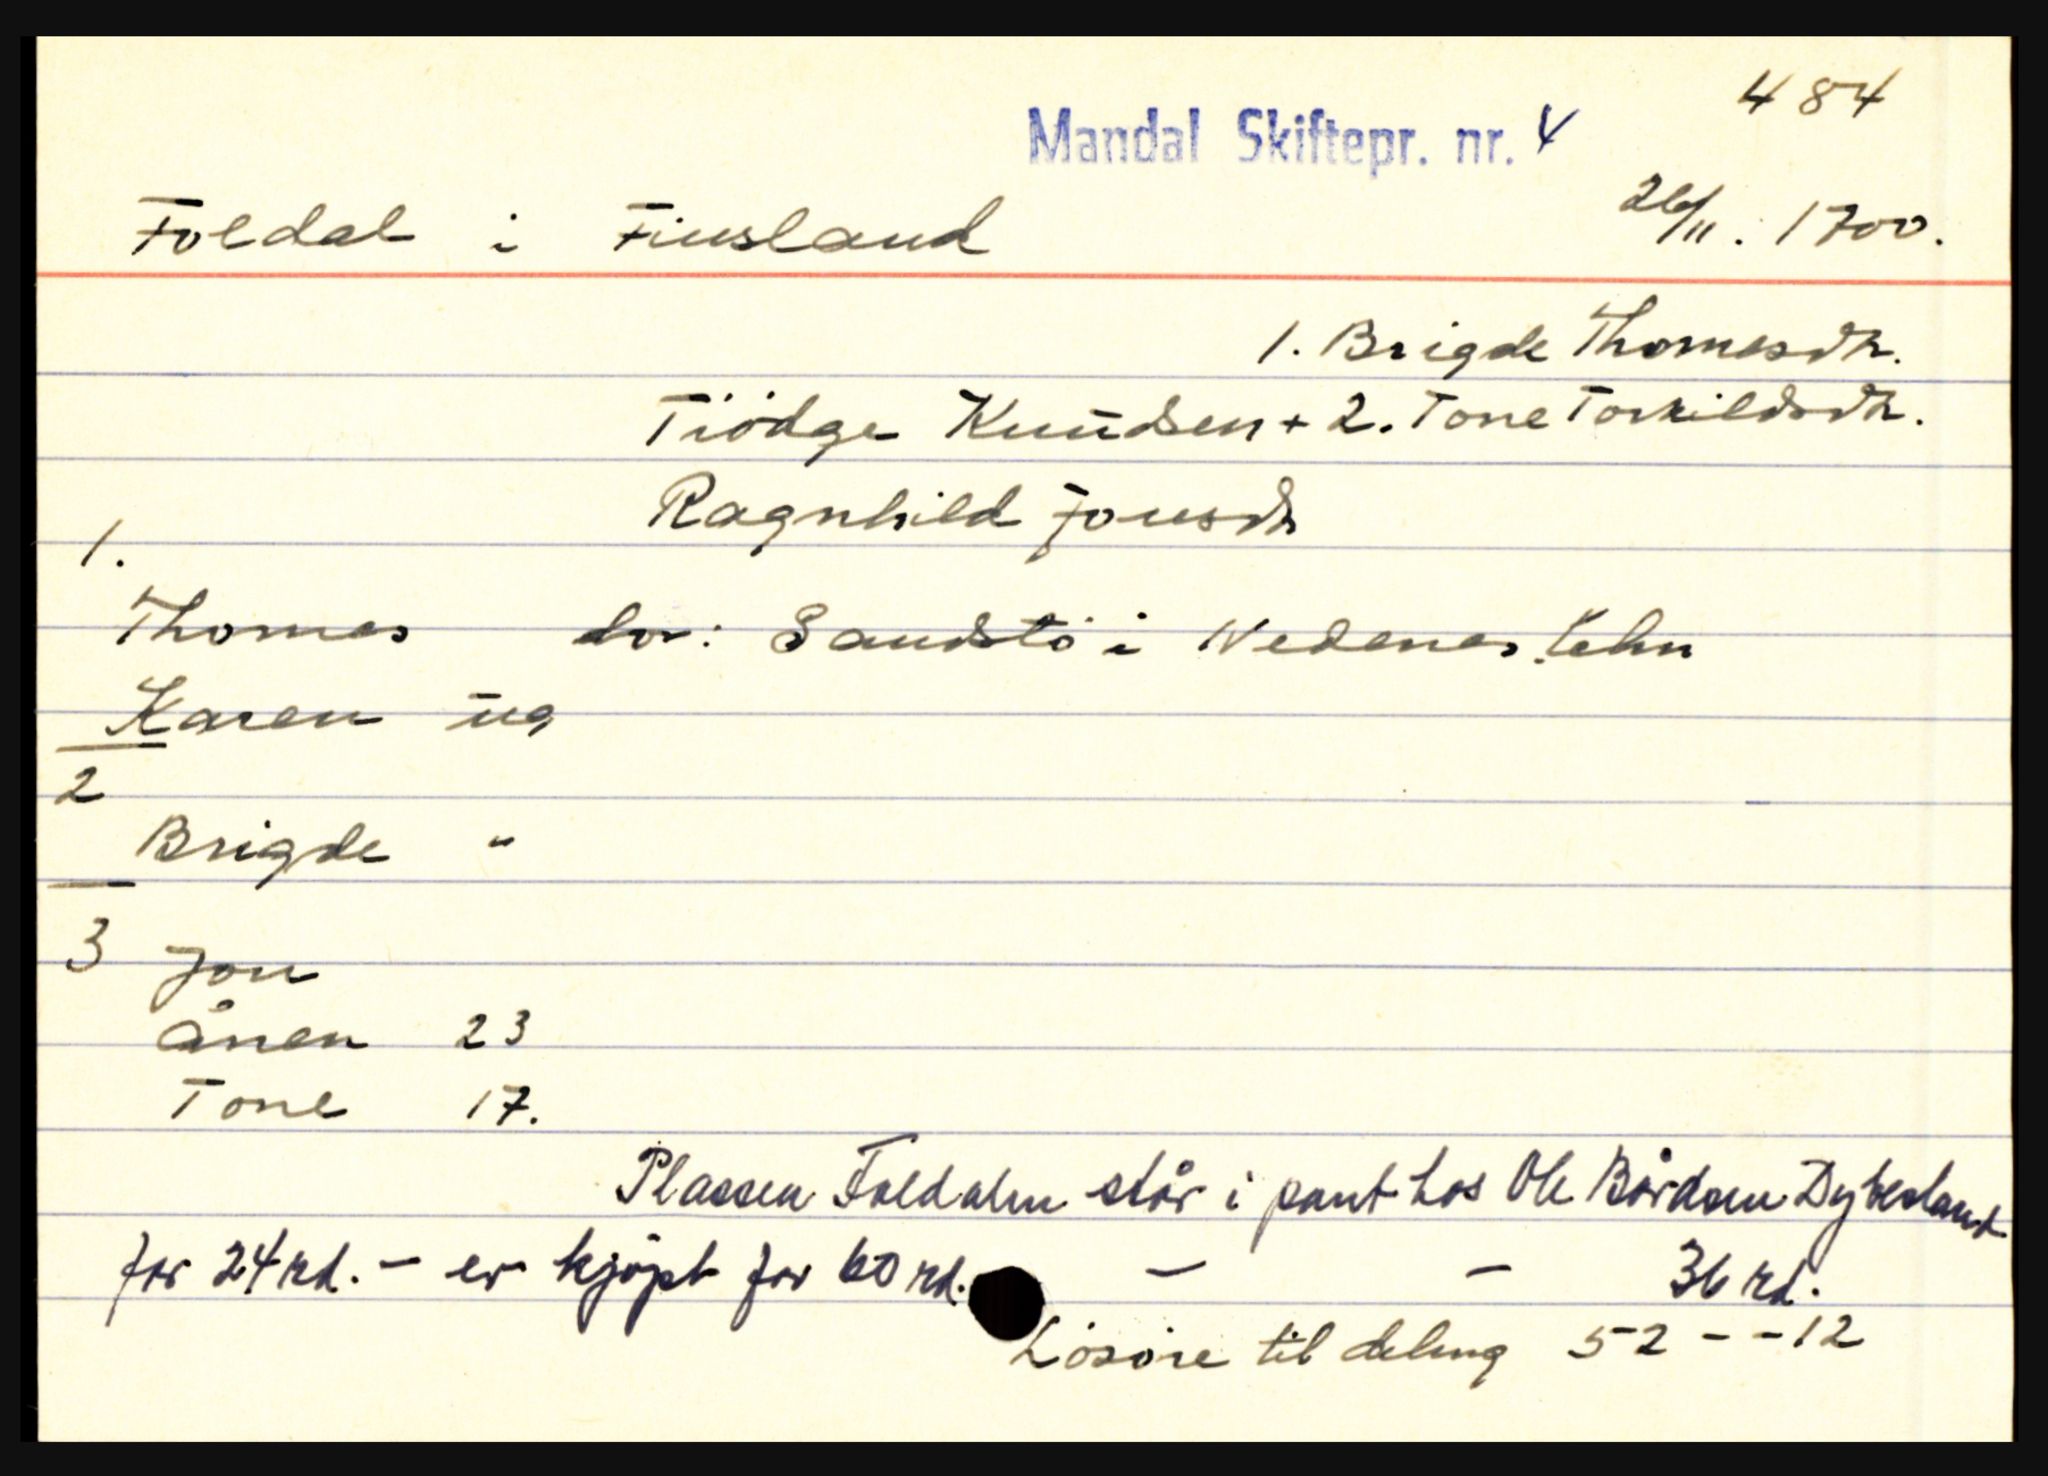 484
Mandal Skiftepr. nr. 4
Foldal i Finsland 26/11. 1700.
1. Brigde Thomasdtr.
Tiödge Knudsen + 2. Tone Torkildsdtr.
Ragnhild Jonsdtr
1.
Thomas bor: Sandstö i Nedenes Lehn
Karen ug
2
Brigde "
3 Jon
Ånen 23
Tone 17.
Plassen Foldalen står i pant hos Ole Bårdsen Dybesland
for 24 rd. - er kjöpt for 60 rd. - - 36 rd.
Lösöre til deling 52 - - 12